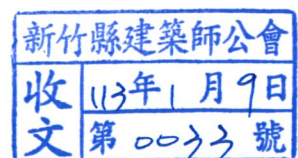 新竹縣建築師公會
收文
113年1月9日
第0033號